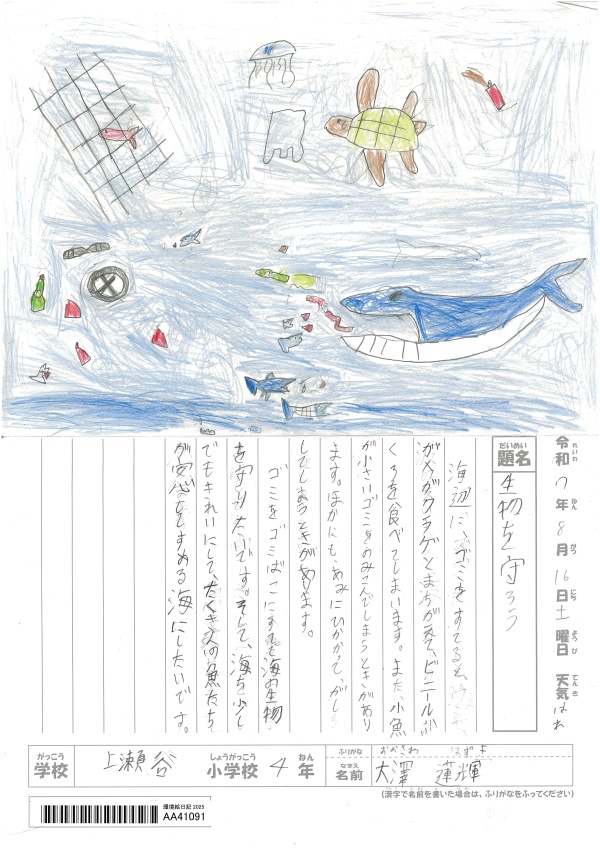 令和7年8月16日土曜日 天気はれ
れいわ ねん がつ にち ようび てんき
題名 生物を守ろう
だいめい
海辺に、ゴミをすてると、
がメがクラゲとまちがえて、ビニールぶ
くろを食べてしまいます。また、小魚
が小さいゴミをのみこんでしまうときがあり
ます。ほかにも、あみにひかかて、がし
してしまうときがあります。
ゴミをゴミばこにすてて海の生物
を守りたいです。そして、海を少し
でもきれいにして、たくさんの魚たち
が安心してすめる海にしたいです。
がっこう しょうがっこう ねん ふりがな おおさわ はずき
学校 上瀬谷 小学校 4年 名前 大澤 蓮輝
なまえ
(漢字で名前を書いた場合は、ふりがなをふってください)
環境絵日記 2025
AA41091